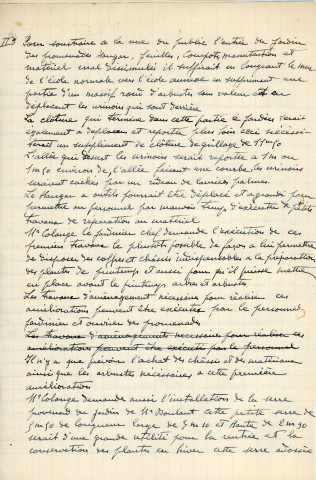 II° Pour soustraire a la vue du public l'entrée du jardin
des promenades hangar, feuilles, composts, manutention et
matériel mal dissimulés il suffirait en longeant le mur
de l'école normale vers l'école annexe en supprimant une
partie d'un massif rond d'arbustes son valeur et en
deplacent les urinoirs qui sont derrière
La clôture qui termine dans cette partie le jardin serait
egalement a deplacer et reportée plus loin ceci necessi-
terait un supplement de clôture de grillage de 11m50
L'allée qui dessert les urinoirs serait reportée a 1m ou
1m50 environ de l'allée faisant une courbe les urinoirs
seraient cachés par un rideau de lauriers palmes.
Le Hangar a outils pourrait être déplacé et agrandi pour
permettre au personnel par mauvais temps d'exécuter de petits
travaux de reparation au matériel
Mr Colonge le jardinier chef demande l'exécution de ces
premiers travaux le plustots possible de façon a lui permettre
de disposer des coffres et chassis indispensables a la preparation
des plantes de printemps et aussi pour qu'il puisse mettre
en place avant le printemps arbres et arbustes
Les travaux d'amenagement necessaires pour réaliser ces
amélioration peuvent être exécutés par le personnel
jardiniers et ouvrier des promenades
Les travaux d'amenagement necessaires pour realiser ces
améliorations peuvent être exécutés par le personnel
Il n'y a que prévoir l'achat des châssis et des materiaux
ainsi que les arbustes necessaires a cette première
amélioration
Mr Colonge demande aussi l'installation de la serre
provenant du jardin de Mr Boulant cette petite serre de
5m50 de longueur large de 3m10 et Haute de 2m90
serait d'une grande utilité pour la rentrée et la
conservation des plantes en hiver cette serre adossée